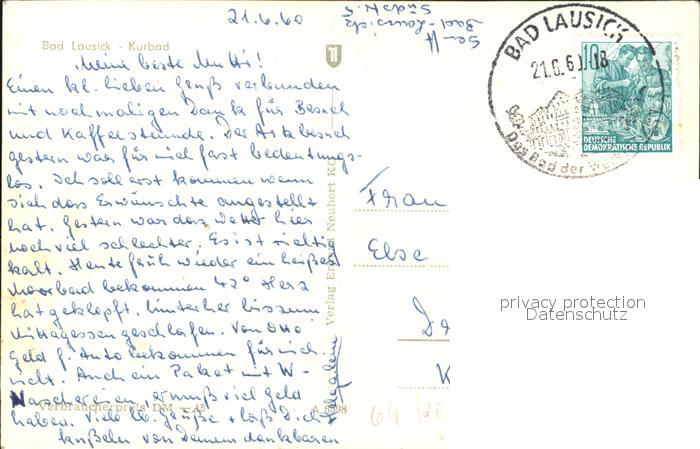 21.6.60
Bad Lausick - Kurbad
Meine beste Mutti!
Einen kl. lieben Gruß verbunden
mit nochmaligen Dank für Besuch
und Kaffeestunde. Der Arztbesuch
gestern war für mich fast bedeutungs-
los. Ich soll erst kommen wenn
sich das Erwünschte eingestellt
hat. Gestern war das Wetter hier
noch viel schlechter. Es ist richtig
kalt. Heute früh wieder ein heißes
Moorbad bekommen 42° Herz
hat geklopft. Hinterher bis zum
Mittagessen geschlafen. Von Otto
Geld f. Auto bekommen für mich
nicht. Auch ein Paket mit W-
er muß viel Geld
haben. Viele lb. Grüße + laß Dich
von Deinem dankbaren
Verbraucherpreis DM
A 6598
Verlag Erhard Neubert
Bad-Lausick
Südstr. 5
BAD LAUSICK
21.6.60.-18
Das Bad der
10
DEUTSCHE
DEMOKRATISCHE REPUBLIK
Frau
Else
K
privacy protection
Datenschutz